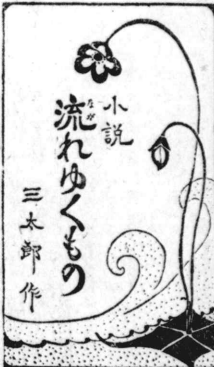 小説
流れゆくもの
なが
三太郎作